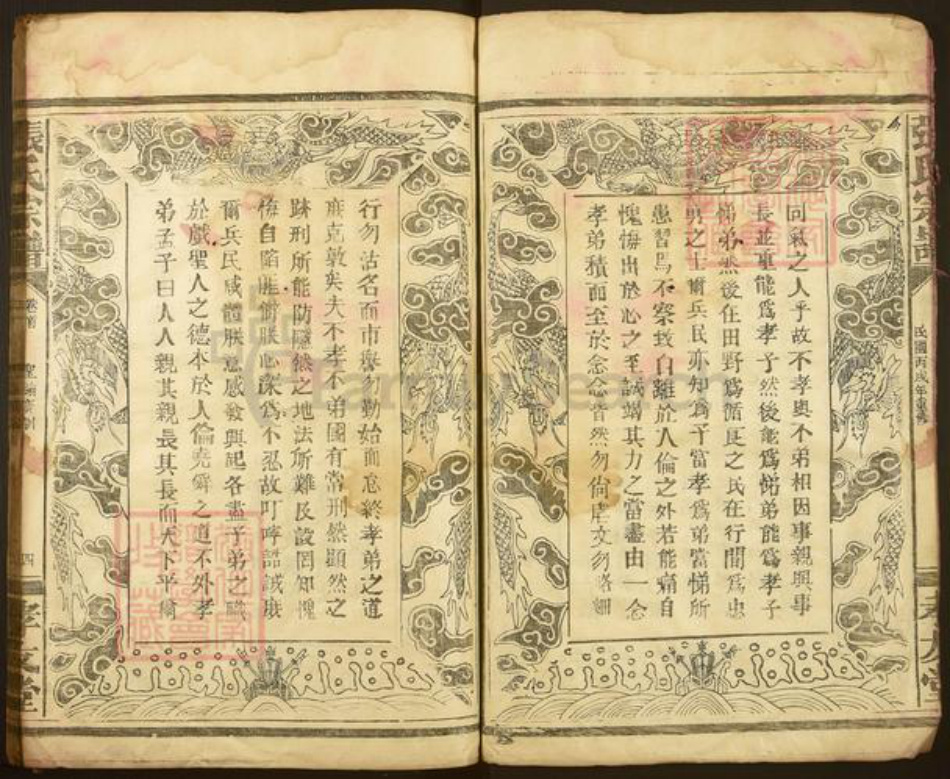 張氏宗譜
民國丙戌年重修
孝友堂
同氣之人乎故不孝與不弟相因事親與事
長並重能爲孝子然後能爲悌弟能爲孝子
悌弟然後在田野爲循良之民在行間爲忠
勇之士爾兵民亦知爲子當孝爲弟當悌所
患習焉不察致自離於人倫之外若能痛自
愧悔出於心之至誠竭其力之當盡由一念
孝弟積而至於念念皆然勿尚虛文勿略細
行勿沽名而市譽勿勤始而怠終孝弟之道
庶克敦矣夫不孝不弟國有常刑然顯然之
跡刑所能防隱然之地法所難及設罔知愧
悔自陷匪僻朕心深爲不忍故叮嚀誥誡庶
爾兵民咸體朕意感發興起各盡子弟之職
於戲聖人之德本於人倫堯舜之道不外孝
弟孟子曰人人親其親長其長而天下平爾
張氏宗譜
卷首
四
孝友堂